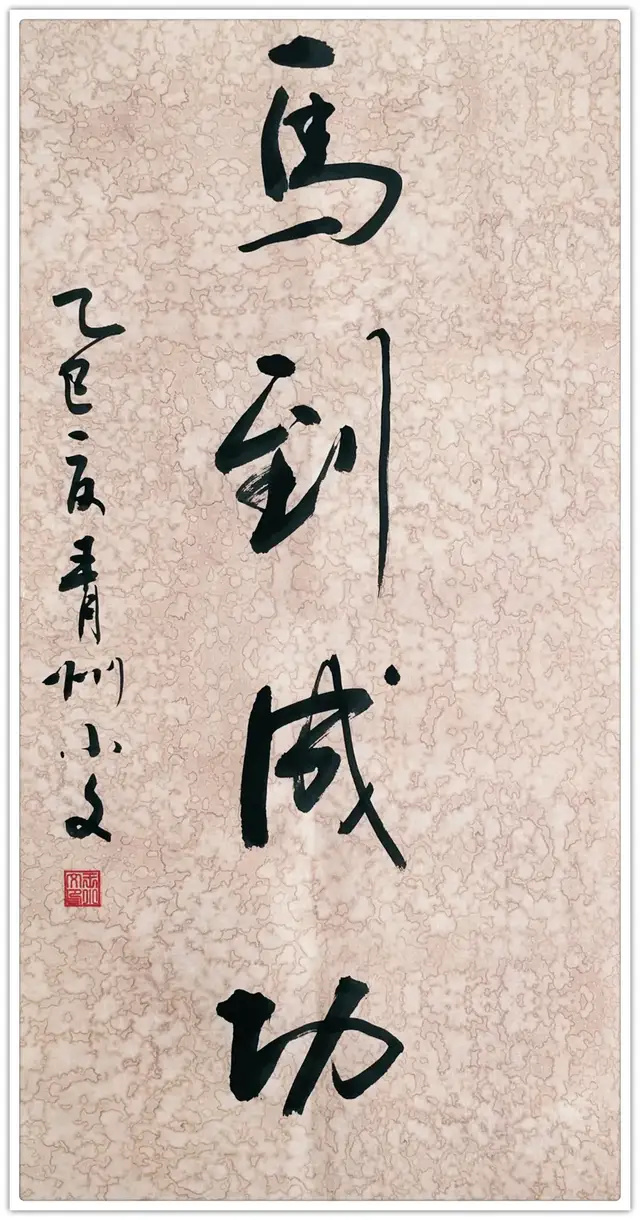 馬到成功
乙巳夏青州小文